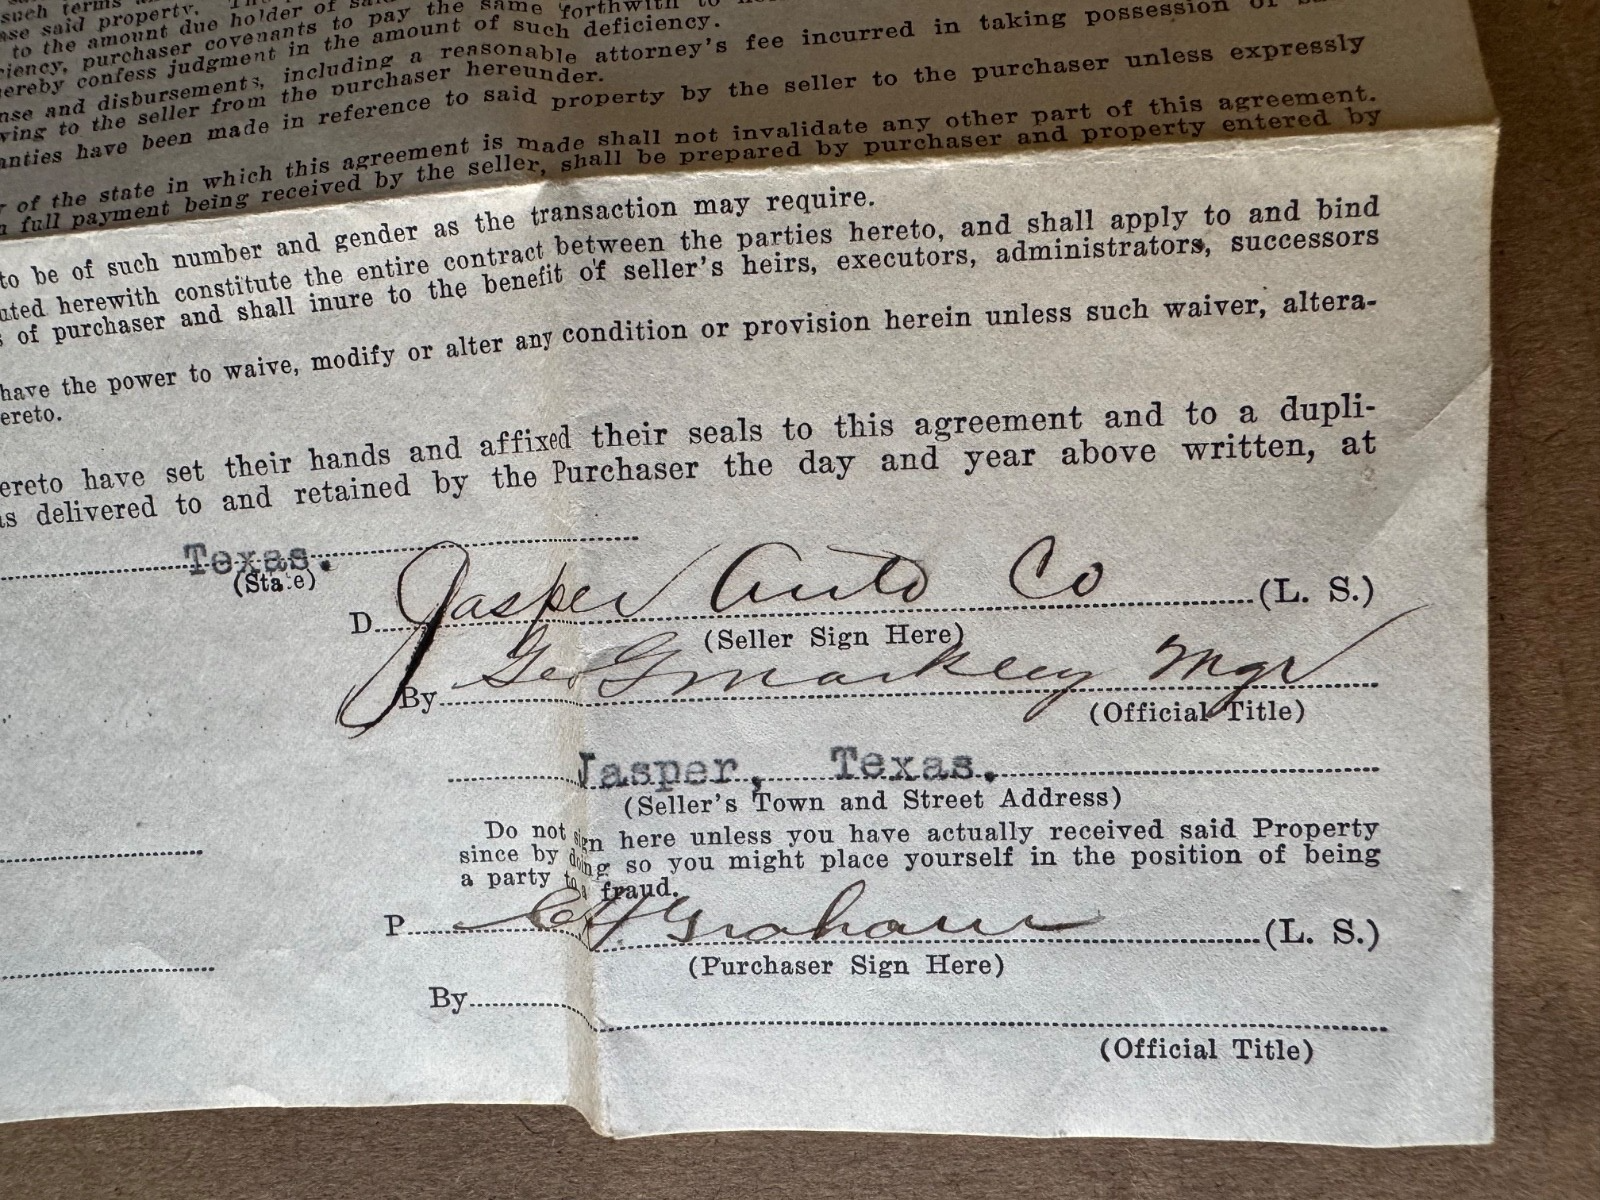 such terms
ase said property.
to the amount due holder of
ciency, purchaser covenants to pay the same forthwith to
ereby confess judgment in the amount of such deficiency.
nse and disbursements, including a reasonable attorney's fee incurred in taking possession of
wing to the seller from the purchaser hereunder.
anties have been made in reference to said property by the seller to the purchaser unless expressly
y of the state in which this agreement is made shall not invalidate any other part of this agreement.
n full payment being received by the seller, shall be prepared by purchaser and property entered by
to be of such number and gender as the transaction may require.
uted herewith constitute the entire contract between the parties hereto, and shall apply to and bind
s of purchaser and shall inure to the benefit of seller's heirs, executors, administrators, successors
have the power to waive, modify or alter any condition or provision herein unless such waiver, altera-
ereto.
ereto have set their hands and affixed their seals to this agreement and to a dupli-
as delivered to and retained by the Purchaser the day and year above written, at
Texas.
(State)
D Jasper Auto Co (L. S.)
(Seller Sign Here)
By Geo G Markley Mgr
(Official Title)
Jasper, Texas.
(Seller's Town and Street Address)
Do not sign here unless you have actually received said Property
since by doing so you might place yourself in the position of being
a party to a fraud.
P Graham (L. S.)
(Purchaser Sign Here)
By
(Official Title)